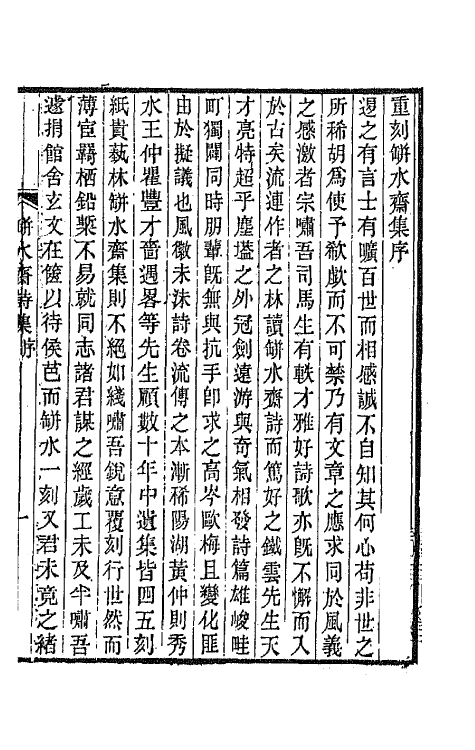 重刻缾水齋集序
退之有言士有曠百世而相感誠不自知其何心苟非世之
所稀胡爲使予欷歔而不可禁乃有文章之應求同於風義
之感激者宗嘯吾司馬生有軼才雅好詩歌亦旣不懈而入
於古矣流連作者之林讀缾水齋詩而篤好之鐵雲先生天
才亮特超乎塵壒之外冠劍遠游與奇氣相發詩篇雄峻畦
町獨闢同時朋輩旣無與抗手卽求之高岑歐梅且變化匪
由於擬議也風徽未沬詩卷流傳之本漸稀陽湖黃仲則秀
水王仲瞿豐才嗇遇畧等先生顧數十年中遺集皆四五刻
紙貴藝林缾水齋集則不絕如綫嘯吾銳意覆刻行世然而
薄宦羇栖鉛槧不易就同志諸君謀之經歲工未及半嘯吾
遽捐館舍玄文在篋以待侯芭而缾水一刻又君未竟之緒
缾水齋詩集序
一